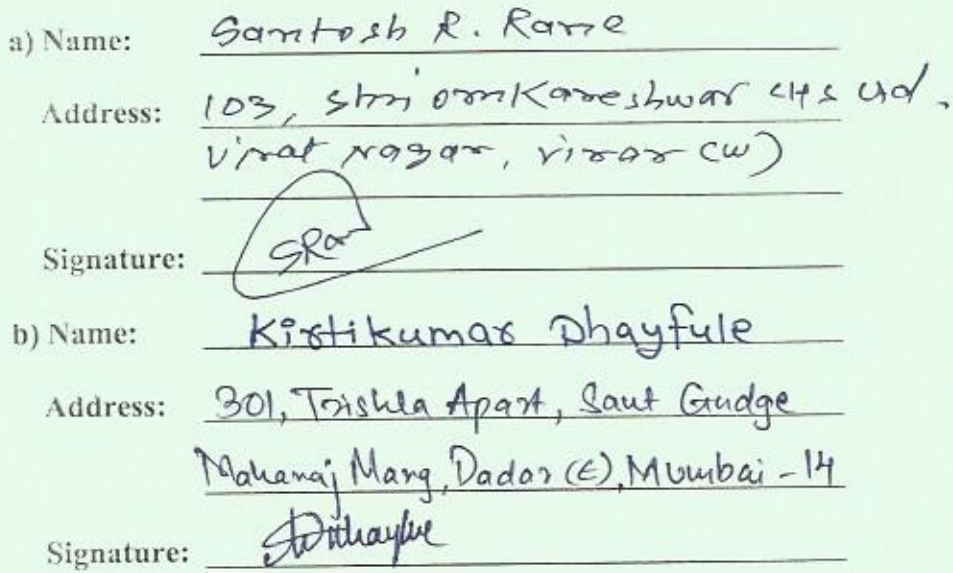 a) Name: Santosh R. Rane
Address: 103, Shri omkareshwar CHS Ltd.
Virat Nagar, Virar (W)
Signature: SRan
b) Name: Kirtikumar Dhayfule
Address: 301, Trishla Apart, Sant Gadge
Maharaj Marg, Dadar (E), Mumbai - 14
Signature: